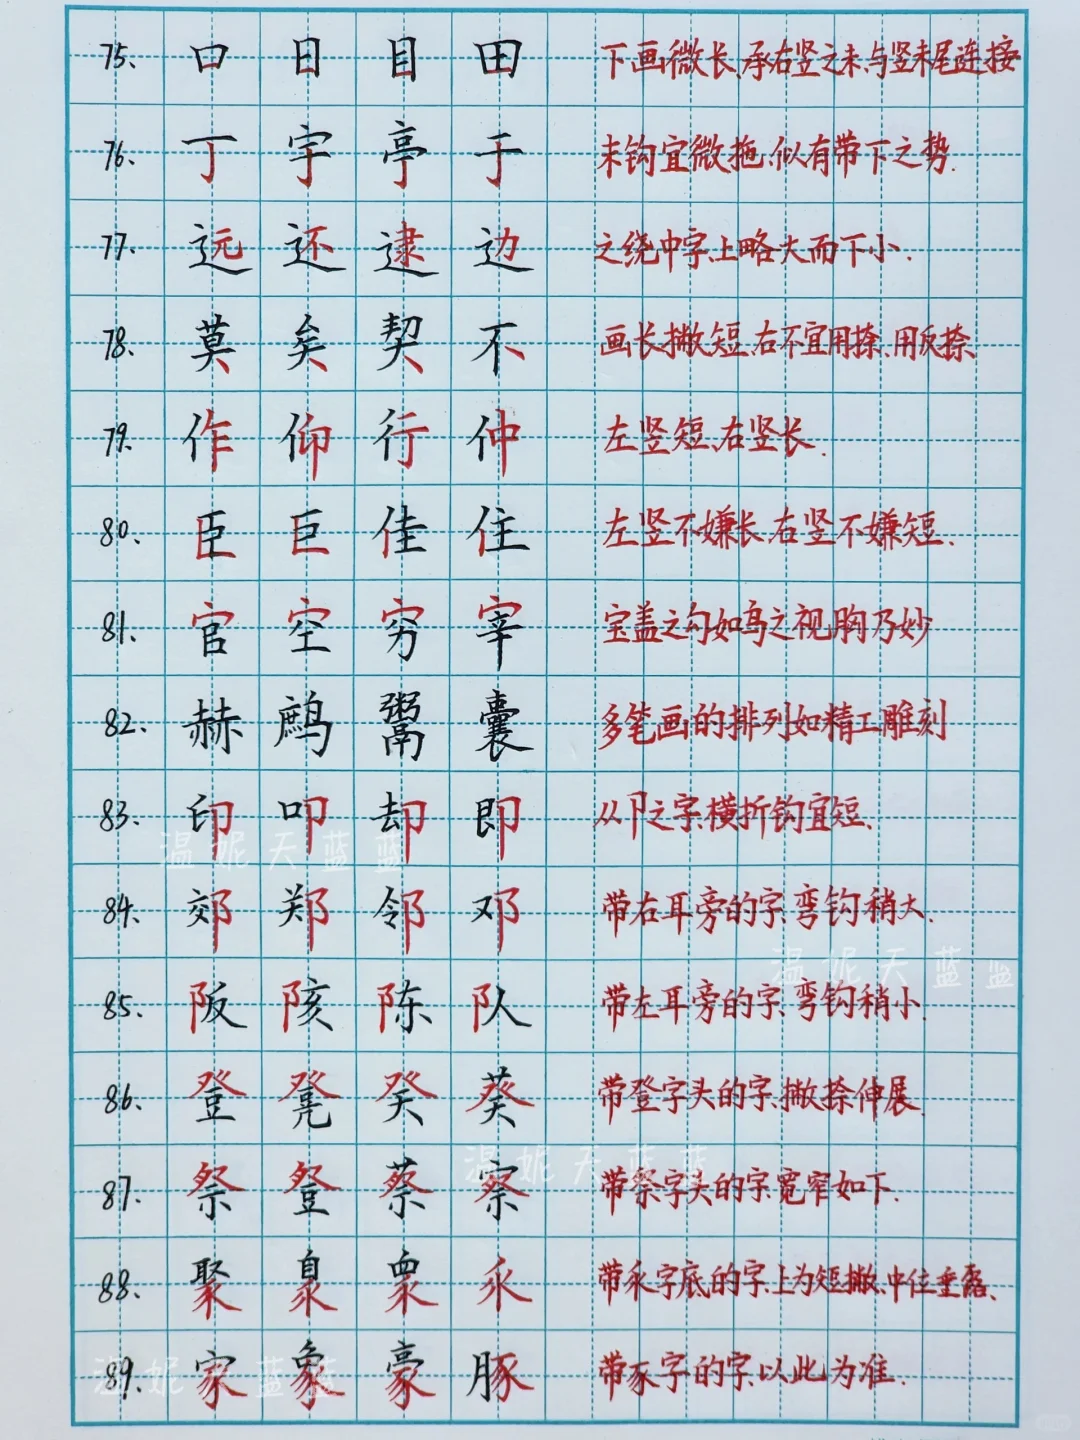 75、 口 日 目 田 下画微长、承右竖之末、与竖末尾连接
76、 丁 宇 亭 于 末钩宜微拖、似有带下之势.
77、 远 还 逮 边 之绕中字、上略大而下小.
78、 莫 矣 契 不 画长撇短、右不宜用捺、用反捺、
79、 作 仰 行 仲 左竖短、右竖长.
80、 臣 巨 佳 住 左竖不嫌长、右竖不嫌短.
81、 官 空 穷 宰 宝盖之勾如鸟之视胸乃妙
82、 赫 鹧 鬻 囊 多笔画的排列如精工雕刻
83、 印 叩 却 即 从卩之字、横折钩宜短、
84、 郊 郑 邻 邓 带右耳旁的字、弯钩稍大.
85、 阪 陔 陈 队 带左耳旁的字、弯钩稍小.
86、 登 凳 癸 葵 带登字头的字、撇捺伸展.
87、 祭 蔡 察 带祭字头的字、宽窄如下.
88、 聚 众 乑 带乑字底的字、上为短撇、中位垂露、
89、 家 象 豪 豚 带豕字的字、以此为准.
温妮天蓝蓝
温妮天蓝蓝
温妮天蓝蓝
温妮天蓝蓝